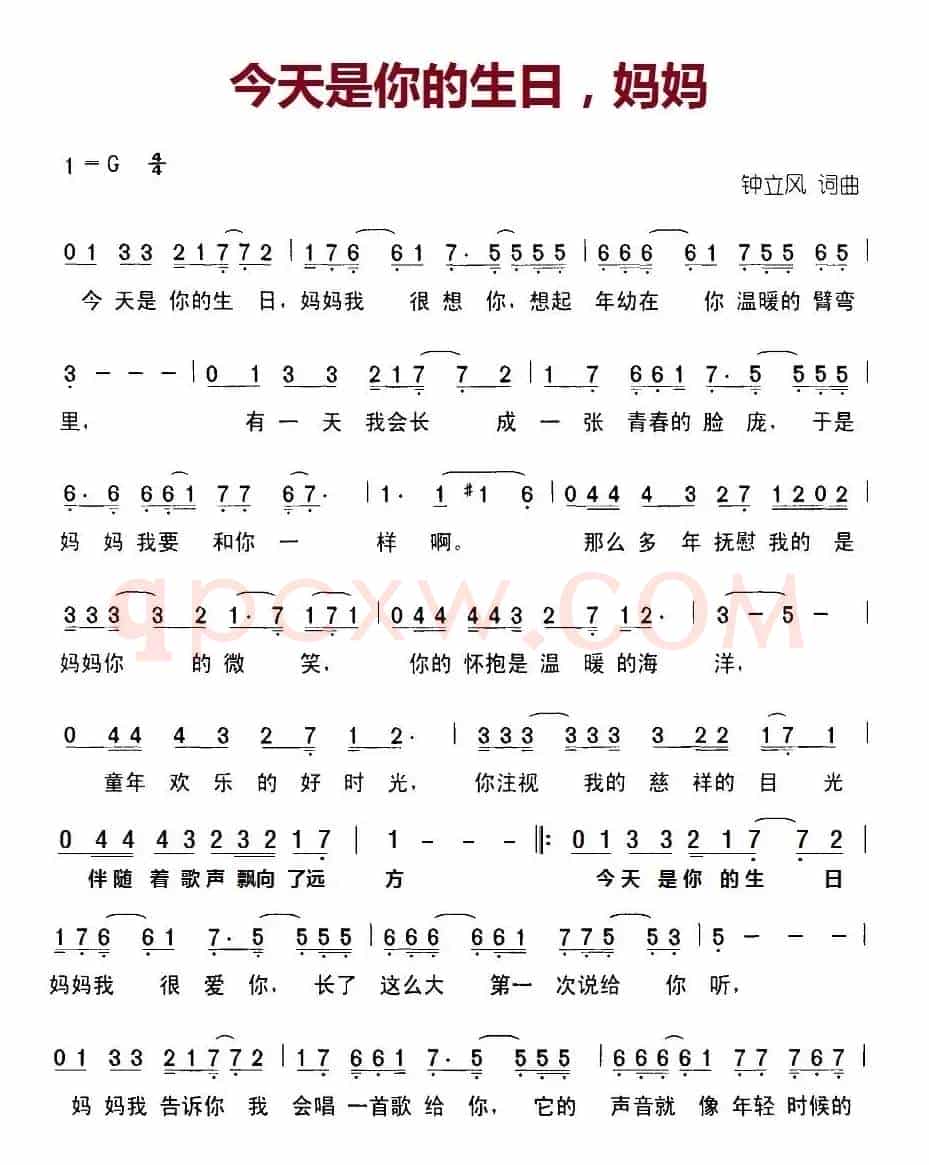 今天是你的生日，妈妈
1=G 4/4
钟立风 词曲
01 33 21772 | 176 61 7. 5555 | 666 61 755 65 |
今 天是 你的生 日，妈妈我 很 想 你，想起 年幼在 你 温暖的 臂弯
3 - - - | 0 1 3 3 217 7 2 | 1 7 661 7. 5 555 |
里， 有 一 天 我会长 成 一 张 青春的 脸 庞，于是
6. 6 661 77 67. | 1. 1 #1 6 | 044 4 3 27 1202 |
妈 妈 我要 和你 一 样 啊。 那么 多 年 抚慰 我的 是
qpcxw.COM
333 3 2 1. 7 171 | 044 443 2 7 12. | 3 - 5 - |
妈妈你 的 微 笑， 你的 怀抱是 温 暖 的海 洋，
0 44 4 3 2 7 1 2. | 333 333 3 22 17 1 |
童年 欢 乐 的 好 时 光， 你注视 我的 慈 祥的 目 光
0 44 432321 7 | 1 - - - ‖: 01 33 217 7 2 |
伴随 着歌声飘向了远 方 今天 是你 的生 日
176 61 7. 5 555 | 666 661 775 53 | 5 - - - |
妈妈我 很 爱 你， 长了 这么大 第一 次说给 你 听，
01 33 21772 | 17 661 7. 5 555 | 66661 77 767 |
妈 妈我 告诉你 我 会唱 一首歌 给 你， 它的 声音就 像 年轻 时候的